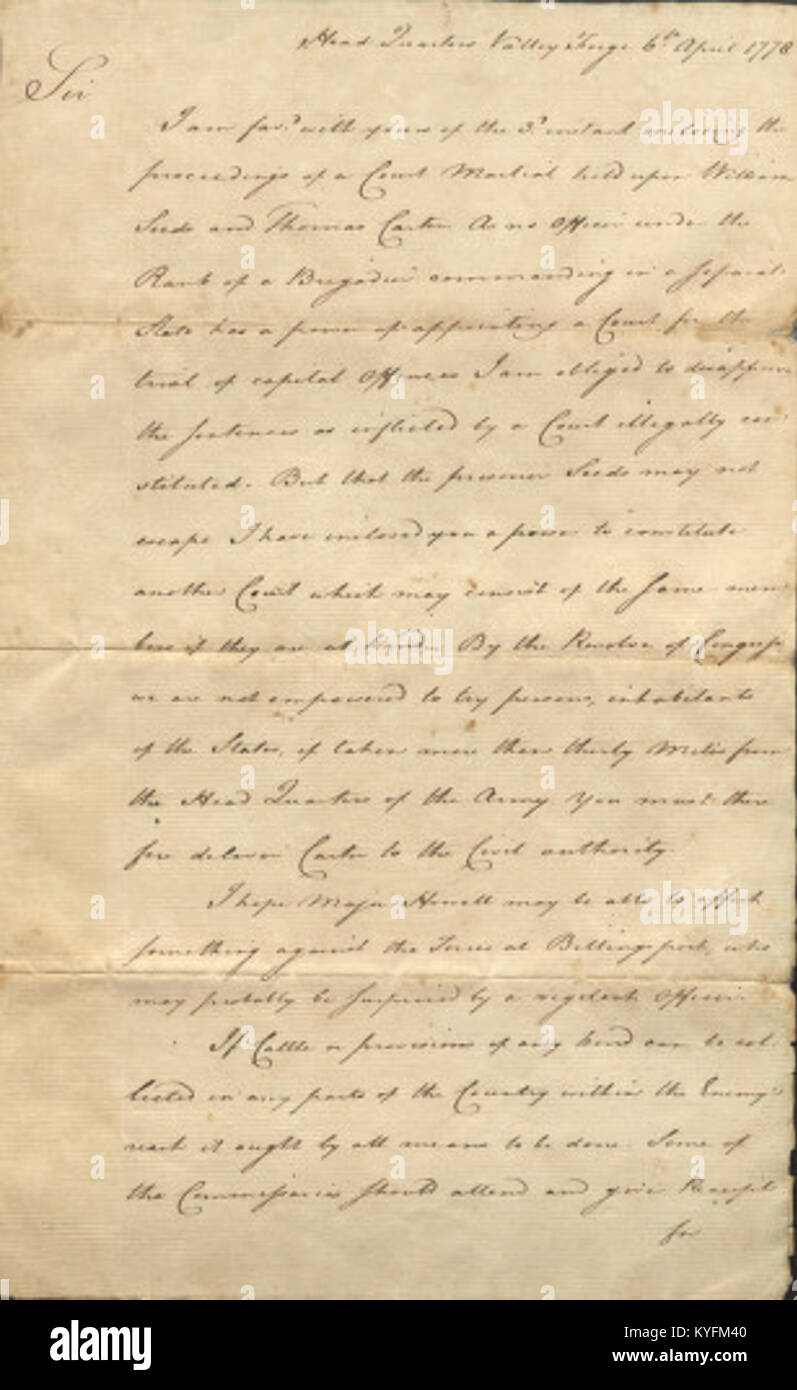 Head Quarters Valley Forge 6th April 1778
Sir
I am favd with yours of the 3d instant enclosing the
proceedings of a Court Martial held upon William
Seeds and Thomas Carter. As no Officer under the
Rank of a Brigadier commanding in a separate
State has a power of appointing a Court for the
trial of capital Offences I am obliged to disapprove
the sentences as inflicted by a Court illegally con
stituted. But that the prisoner Seeds may not
escape I have inclosed you a power to constitute
another Court which may consist of the same mem
bers if they are at hand. By the Resolve of Congress
we are not empowered to try persons, inhabitants
of the States, if taken more than thirty Miles from
the Head Quarters of the Army. You must there
fore deliver Carter to the Civil authority.
I hope Major Howell may be able to effect
something against the Tories at Billingsport, who
may probably be surprised by a vigilant Officer.
If Cattle or provisions of any kind can be col
lected in any parts of the Country within the Enemy's
reach it ought by all means to be done. Some of
the Commissaries should attend and give Receipts
for
alamy
Image ID: KYFM40
www.alamy.com